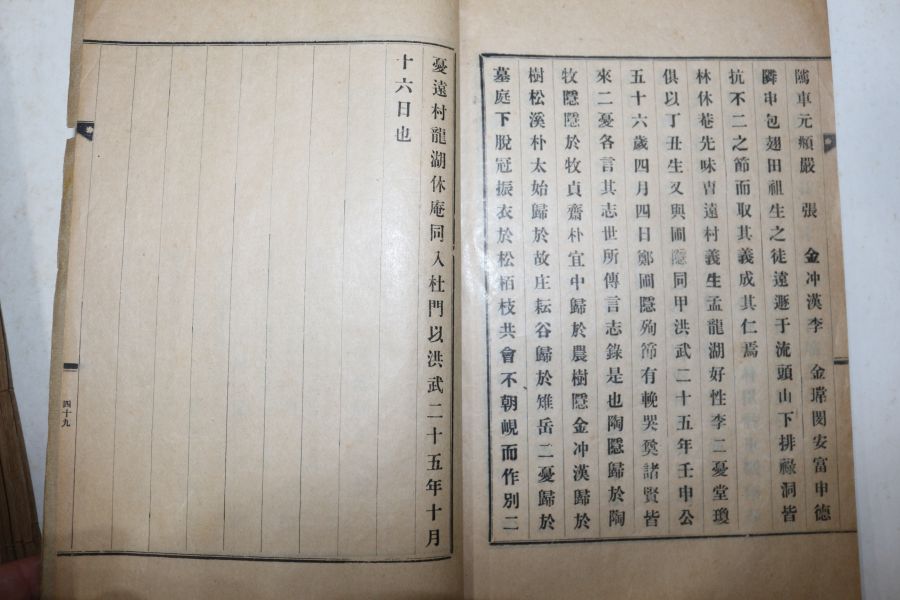 隲車元頫嚴　張　金冲漢李　金㻶閔安富申德
隣申包翅田祖生之徒遠遯于流頭山下排祿洞皆
抗不二之節而取其義成其仁焉
林休菴先味曺遠村義生孟龍湖好性李二憂堂瓊
俱以丁丑生又與圃隱同甲洪武二十五年壬申公
五十六歲四月四日鄭圃隱殉節有輓哭奠諸賢皆
來二憂各言其志世所傳言志錄是也陶隱歸於陶
牧隱隱於牧貞齋朴宜中歸於農樹隱金冲漢歸於
樹松溪朴太始歸於故庄耘谷歸於雉岳二憂歸於
墓庭下脫冠振衣於松栢枝共會不朝峴而作別二
憂遠村龍湖休庵同入杜門以洪武二十五年十月
十六日也
四十九